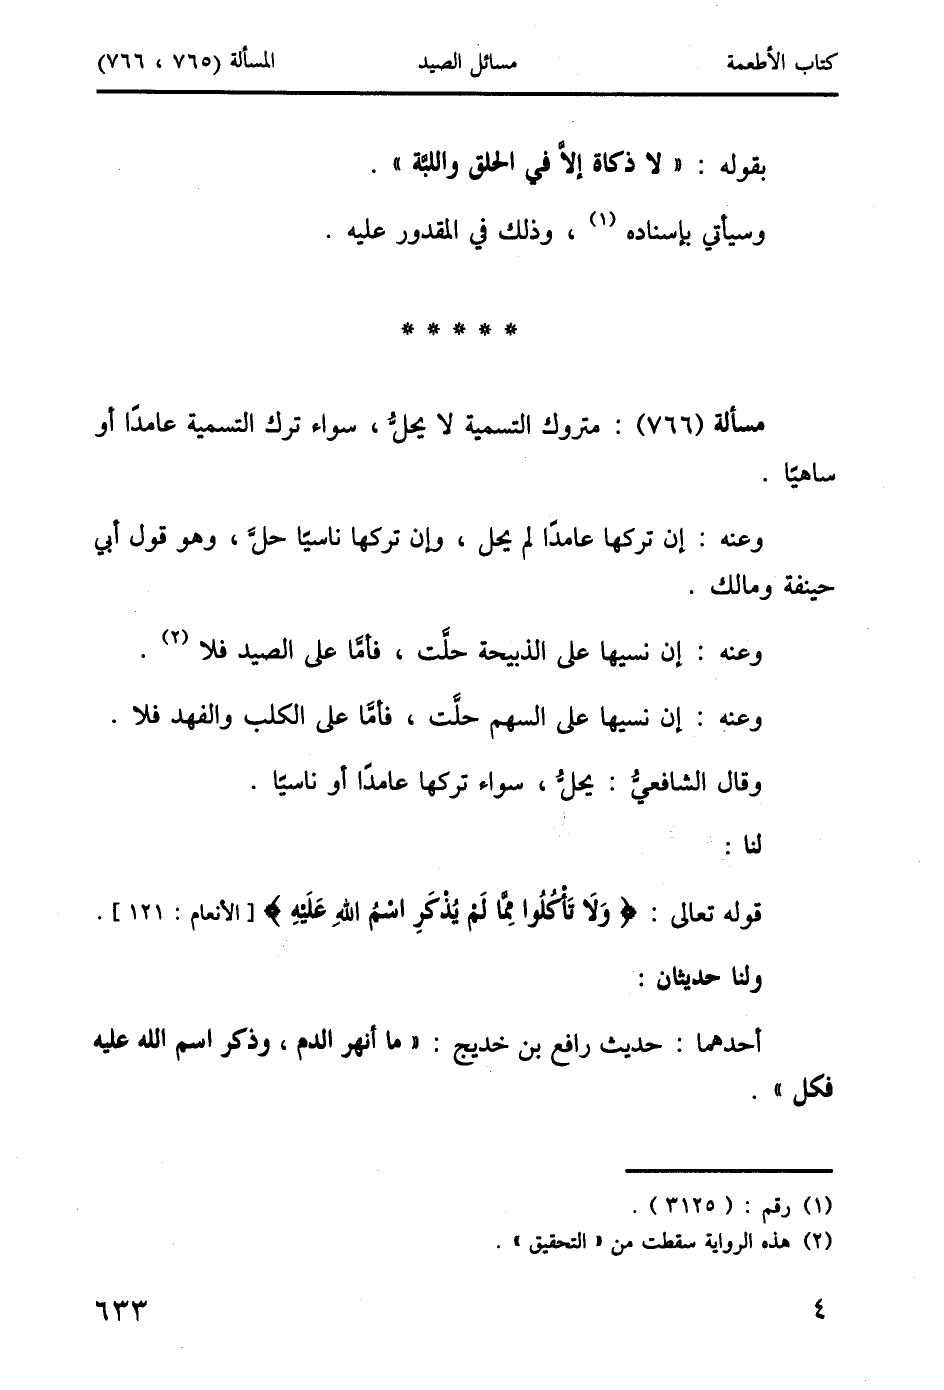 كتاب الأطعمة مسائل الصيد المسألة (٧٦٥ ، ٧٦٦)
بقوله : « لا ذكاة إلاَّ في الحلق واللبَّة » .
وسيأتي بإسناده (١) ، وذلك في المقدور عليه .
* * * * *
مسألة (٧٦٦) : متروك التسمية لا يحلُّ ، سواء ترك التسمية عامدًا أو
ساهيًا .
وعنه : إن تركها عامدًا لم يحل ، وإن تركها ناسيًا حلَّ ، وهو قول أبي
حينفة ومالك .
وعنه : إن نسيها على الذبيحة حلَّت ، فأمَّا على الصيد فلا (٢) .
وعنه : إن نسيها على السهم حلَّت ، فأمَّا على الكلب والفهد فلا .
وقال الشافعيُّ : يحلُّ ، سواء تركها عامدًا أو ناسيًا .
لنا :
قوله تعالى : ﴿ وَلَا تَأْكُلُوا مِمَّا لَمْ يُذْكَرِ اسْمُ اللهِ عَلَيْهِ ﴾ [ الأنعام : ١٢١ ] .
ولنا حديثان :
أحدهما : حديث رافع بن خديج : « ما أنهر الدم ، وذكر اسم الله عليه
فكل » .
(١) رقم : ( ٣١٢٥ ) .
(٢) هذه الرواية سقطت من « التحقيق » .
٤ ٦٣٣